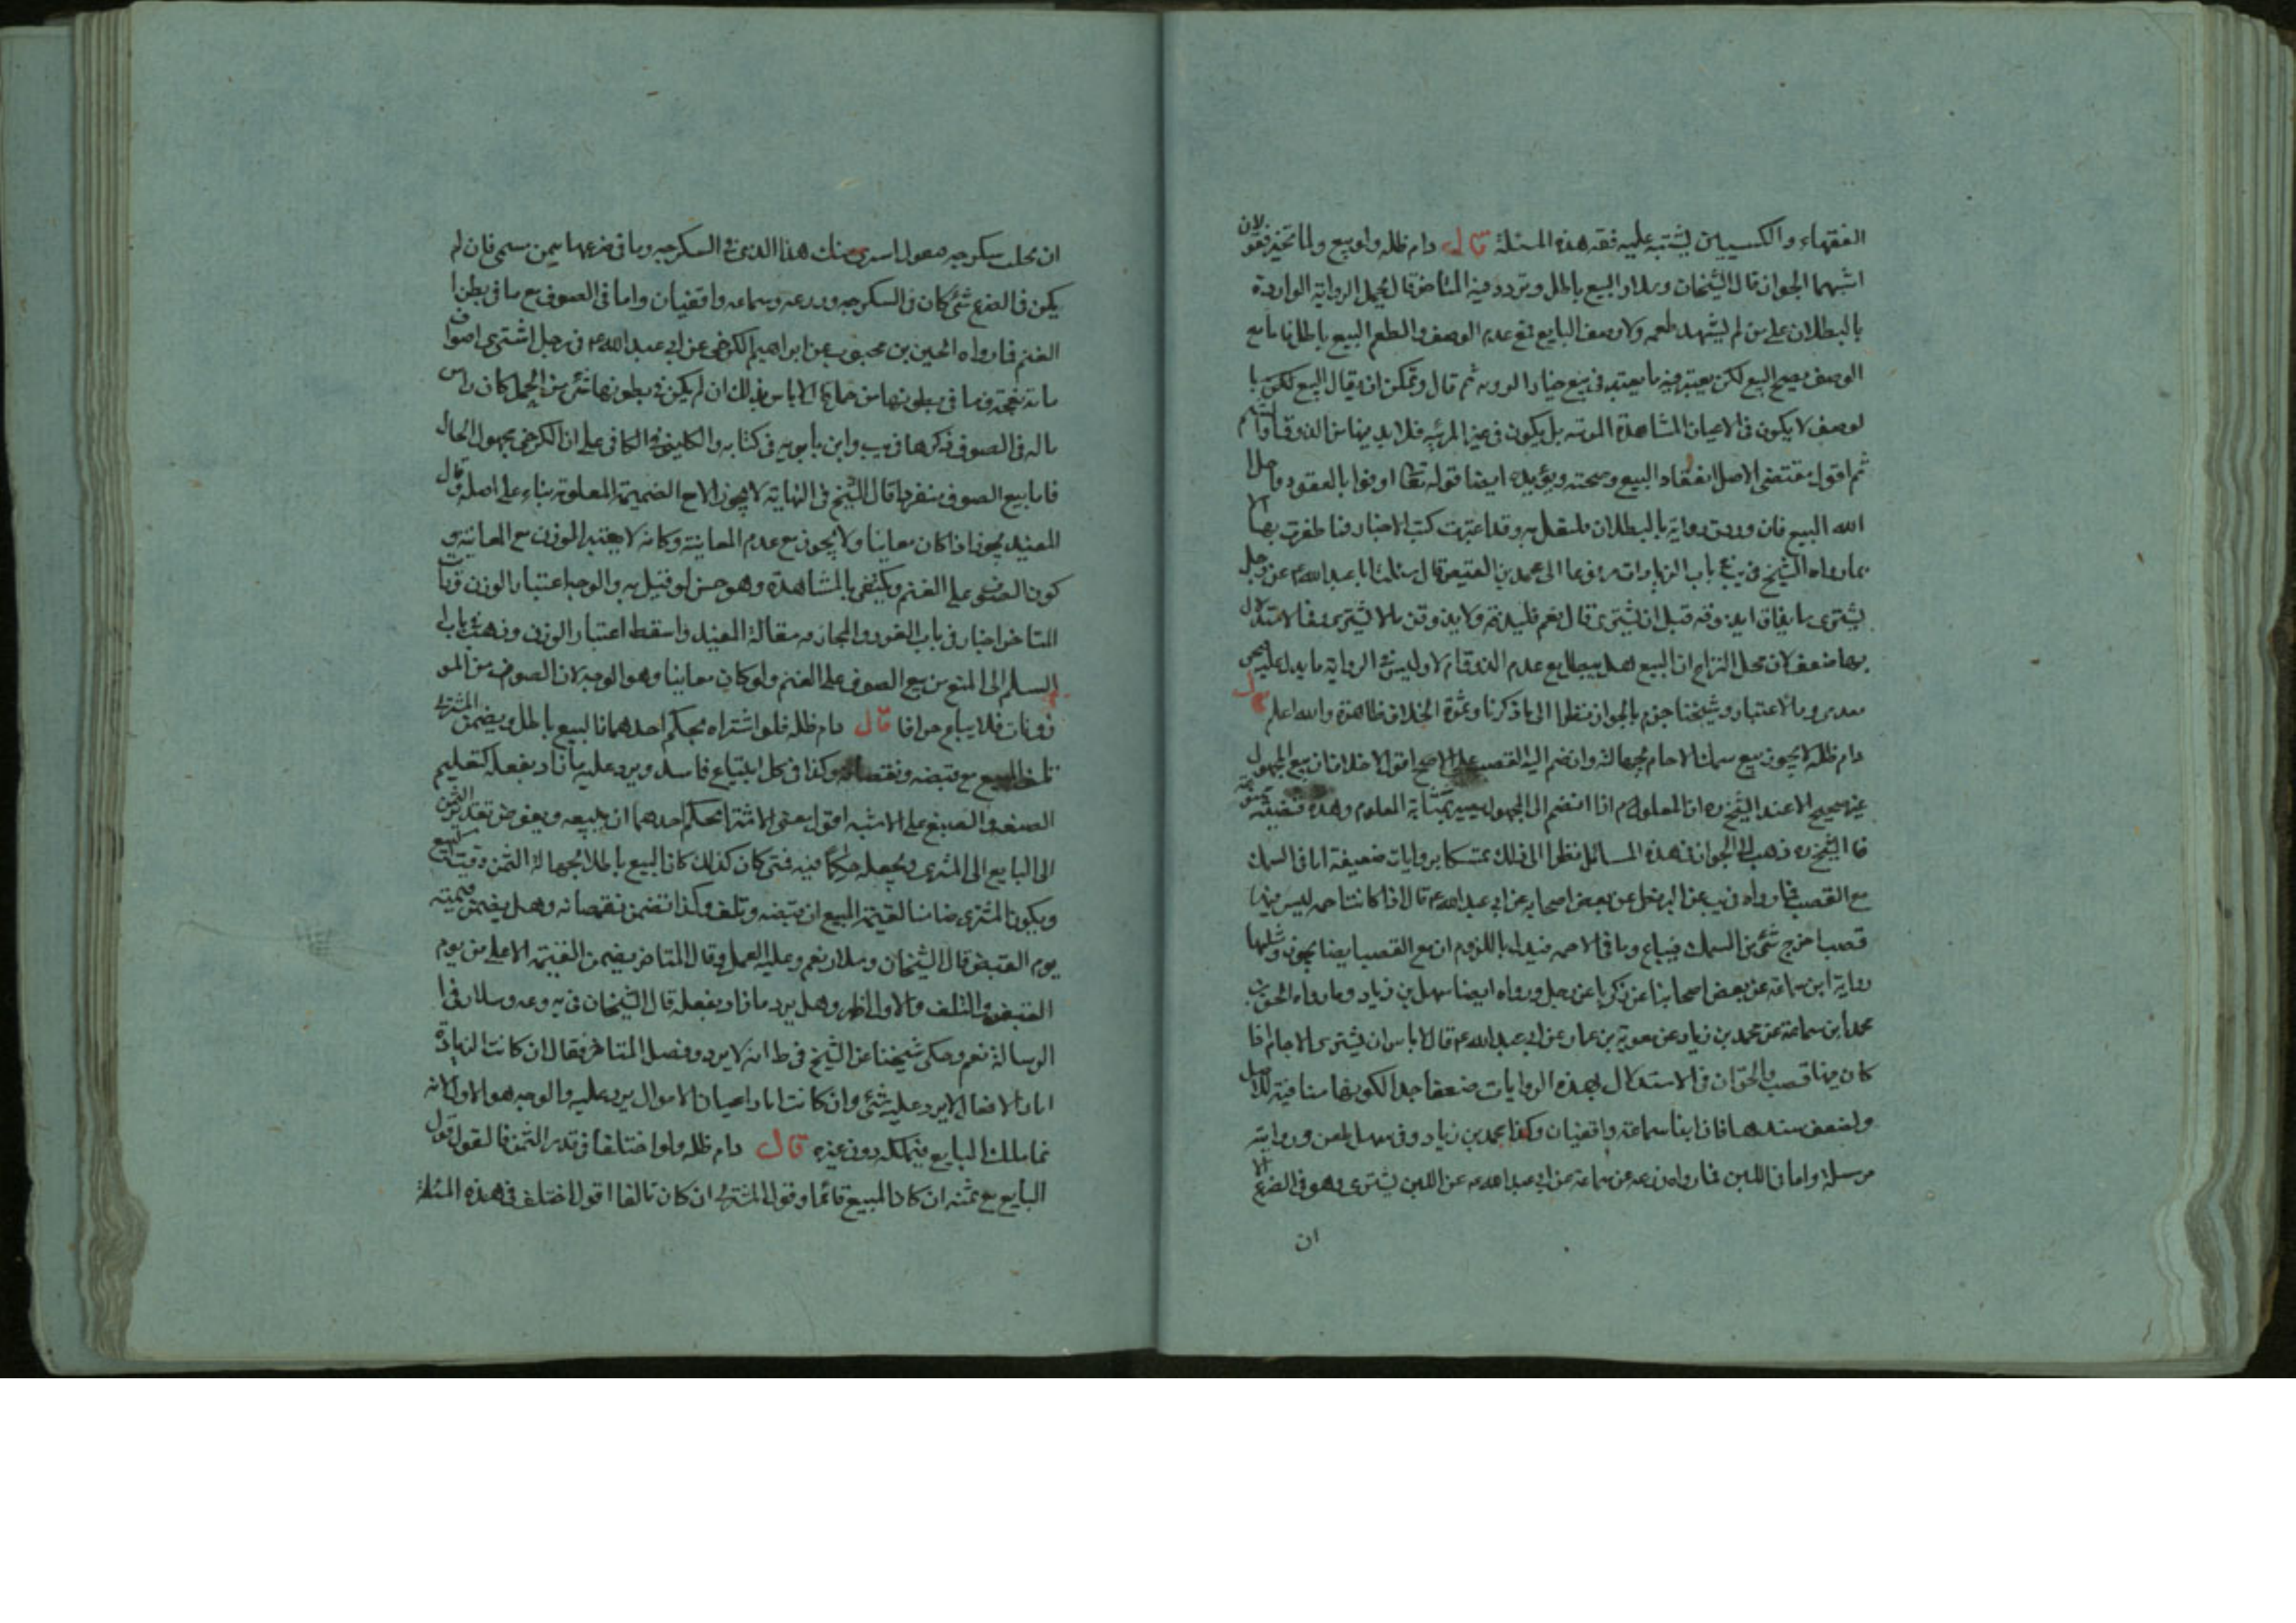 الفقهاء والكسبيين يشتبه عليه فقه هذه المسئلة قال دام ظله ولو بيع ولما تختبر فقولان
اشبههما الجواز قال الشيخان وسلار البيع باطل وتردد فيه المتاخر قال يحمل الرواية الواردة
بالبطلان على من لم يشهد طعمه ولا وصف البايع فمع عدم الوصف والطعم البيع باطل فاما مع
الوصف فيصح البيع لكن يعتبر فيه ما يعتبر في بيع خيار الرويه ثم قال ويمكن ان يقال البيع لكن با
لوصف لا يكون في الاعيان المشاهدة المرئية بل يكون في غير المرئيه فلا بد من الذوق او الشم
ثم اقول مقتضى الاصل انعقاد البيع وصحته ويؤيده ايضا قوله تعالى اوفوا بالعقود واحل
الله البيع فان وردت رواية بالبطلان فلنعمل به وقد اعتبرت كتب الاخبار فما ظفرت بها الا
بما رواه الشيخ في يب في باب الزيادات مرفوعا الى محمد بن العيص قال سئلت ابا عبد الله ع عن رجل
يشترى ما يذاق ايذوقه قبل ان يشترى قال نعم فليذقه ولا يذوقن ما لا يشترى وفي الاستدلال
بها ضعف لان محل النزاع ان البيع هل يبطل مع عدم الذوق ام لا وليس في الرواية ما يدل عليه
وبالاعتبار وشيخنا جزم بالجواز نظرا الى ما ذكرنا وثمرة الخلاف ظاهرة والله اعلم قال
دام ظله لا يجوز بيع سمك الاجام لجهالته وان ضم اليه القصب على الاصح اقول لا خلاف ان بيع المجهول
غير صحيح الا عند الشيخ ره ان المعلوم اذا انضم الى المجهول يصير بمثابة المعلوم وهذه قضية
فالشيخ ره ذهب الى الجواز في هذه المسائل نظرا الى ذلك متمسكا بروايات ضعيفة اما في السمك
مع القصب فما رواه في يب عن البزنطي عن بعض اصحابه عن ابي عبد الله ع قال اذا كانت اجمه ليس فيها
قصب اخرج شئ من السمك فيباع وما في الاجمه فيدل باللزوم ان مع القصب ايضا يجوز ومثلها
رواية ابن سماعة عن بعض اصحابنا عن زكريا عن رجل ورواه ايضا سهل بن زياد وما رواه الحسن بن
محمد بن سماعة عن محمد بن زياد عن معوية بن عمار عن ابي عبد الله ع قال لا باس ان يشترى الاجام اذا
كان فيها قصب والحق ان في الاستدلال بهذه الروايات ضعفا جدا لكونها منافية للاصل
ولضعف سندها فان ابنا سماعة واقفيان وكذا محمد بن زياد وفي سهل طعن ورواية
مرسلة واما في اللبن فما رواه زرعه عن سماعة عن ابي عبد الله ع عن اللبن يشترى وهو في الضرع قال لا الا
ان
ان يحلب سكرجه فيقول اشترى منك هذا الذى في السكرجه وما في ضرعها بثمن مسمى فان لم
يكن في الضرع شئ كان في السكرجه وزرعه وسماعه واقفيان واما في الصوف مع ما في بطن ا
الغنم فما رواه الحسين بن محبوب عن ابراهيم الكرخي عن ابي عبد الله ع في رجل اشترى اصواف
ماة نعجة وما في بطونها من حمل قال لا باس بذلك ان لم يكن في بطونها شئ من الحمل كان راس
ماله في الصوف ذكرها في يب وابن بابويه في كتابه والكليني في الكافي على ان الكرخي مجهول الحال
فاما بيع الصوف منفردا قال الشيخ في النهاية لا يجوز الا مع الضميمة المعلومة بناء على اصله وقال
المفيد يجوز اذا كان معاينا ولا يجوز مع عدم المعاينة وكانه لا يعتبر الوزن مع المعاينة و
كون الصوف على الغنم ويكتفى بالمشاهدة وهو حسن لو قيل به والوجه اعتبار الوزن وفاقا
المتاخر اختار في باب الغرر والمجازفه مقالة المفيد واسقط اعتبار الوزن وذهب في باب
السلم الى المنع من بيع الصوف على الغنم ولو كان معاينا وهو الوجه لان الصوف من المو
زونات فلا يباع جزافا قال دام ظله فلو اشتراه بحكم احدهما فالبيع باطل ويضمن المشترى
تلف المبيع مع قبضه ونقصانه وكذا في كل ابتياع فاسد ويرد عليه ما زاد بفعله كتعليم
الصنعه والصبغ على الاشبه اقول يعنى الاشتراء بحكم احدهما ان يبيعه ويفوض تقدير الثمن
الى البايع الى المشترى ويجعله حكما فيه فمتى كان كذلك كان البيع باطلا لجهالة الثمن وقت البيع
ويكون المشترى ضامنا لقيمة المبيع ان قبضه وتلف وكذا تضمن نقصانه وهل يضمن قيمته
يوم القبض قال الشيخان وسلار نعم وعليه العمل وقال المتاخر يضمن القيمة الاعلى من يوم
القبض والتلف والاول اظهر وهل يرد ما زاد بفعله قال الشيخان في يه وعه وسلار في ا
الرسالة نعم وحكى شيخنا عن الشيخ في ط انه لا يرد وفصل المتاخر فقال ان كانت الزيادة
اثار الافعال لا يرد عليه شئ وان كانت اثار اعيان الاموال يرد عليه والوجه هو الاول لانه
نما ملك البايع فيملكه دون غيره قال دام ظله ولو اختلفا في قدر الثمن فالقول قول
البايع مع يمينه ان كان المبيع قائما وقول المشترى ان كان تالفا اقول اختلف في هذه المسئلة